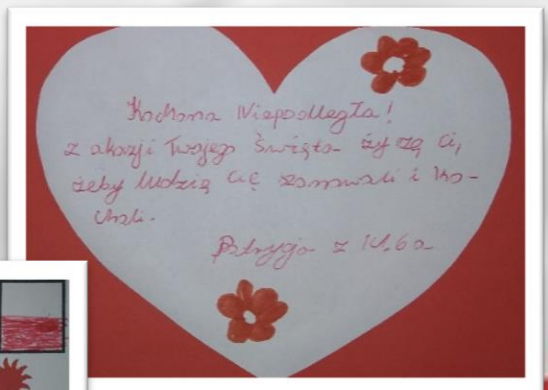 Kochana Niepodległa!
z okazji Twojego Święta życzę Ci,
żeby ludzie Cię szanowali i ko-
chali.
Patrycja z kl. 6a